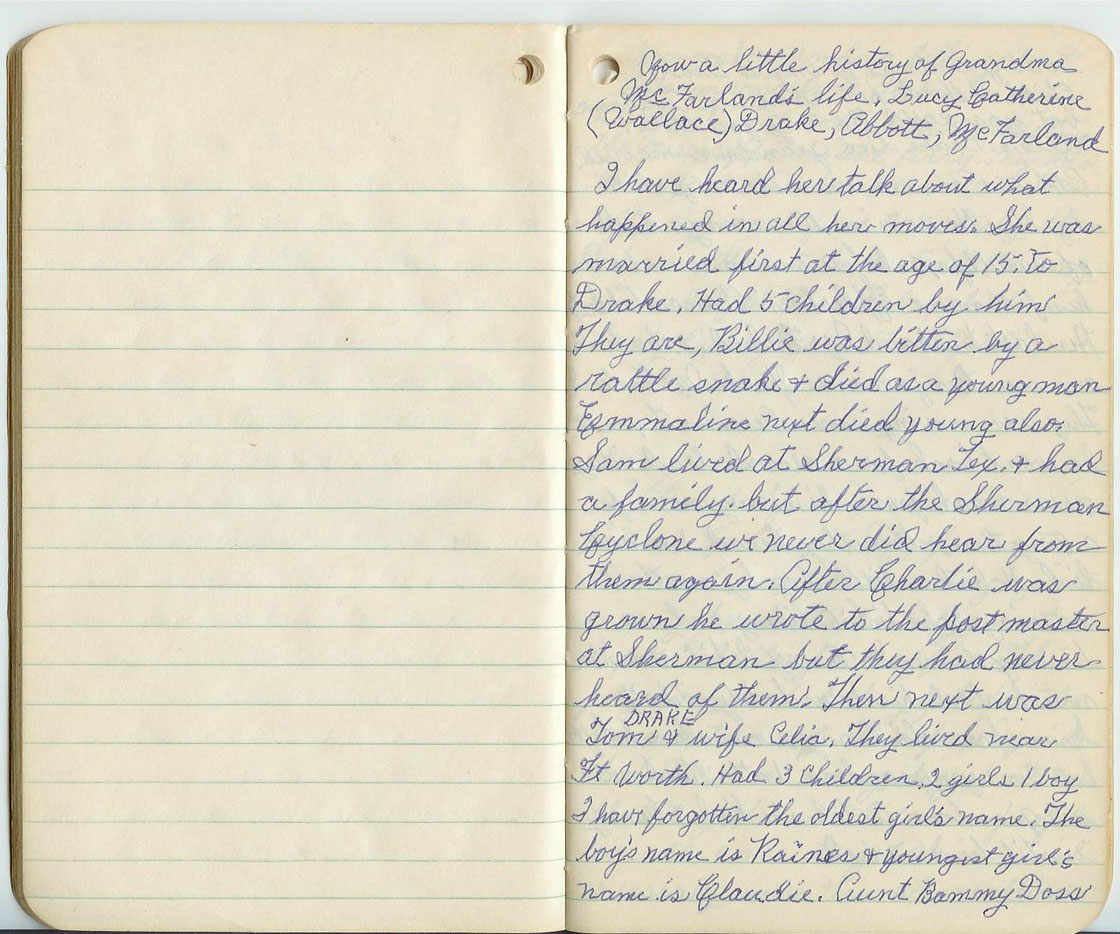 Now a little history of Grandma
McFarland's life. Lucy Catherine
(Wallace) Drake, Abbott, McFarland
I have heard her talk about what
happened in all her moves. She was
married first at the age of 15. To
Drake. Had 5 children by him
They are, Billie was bitten by a
rattle snake & died as a young man
Emmaline next died young also.
Sam lived at Sherman Tex. & had
a family. but after the Sherman
Cyclone we never did hear from
them again. After Charlie was
grown he wrote to the post master
at Sherman but they had never
heard of them. Then next was
DRAKE
Tom & wife Celia. They lived near
Ft Worth. Had 3 Children, 2 girls 1 boy
I have forgotten the oldest girl's name. The
boy's name is Raines & youngest girl's
name is Claudie. Aunt Bammy Doss